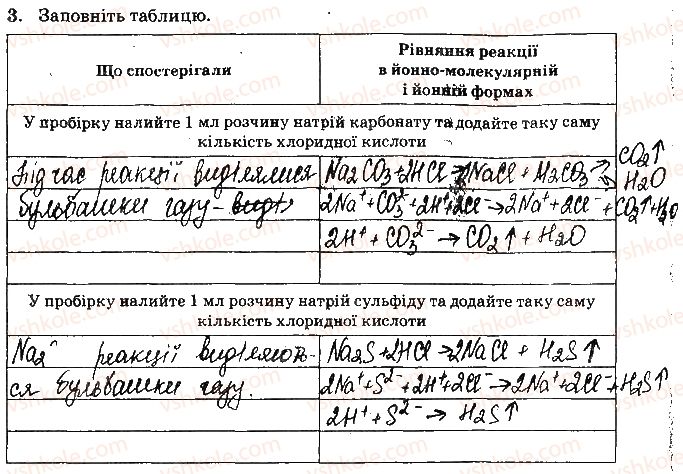 3. Заповніть таблицю.
Що спостерігали
Рівняння реакції
в йонно-молекулярній
і йонній формах
У пробірку налийте 1 мл розчину натрій карбонату та додайте таку саму
кількість хлоридної кислоти
Під час реакції виділялися
бульбашки газу
Na2CO3+2HCl→2NaCl+H2CO3 CO2↑
H2O
2Na⁺+CO3²⁻+2H⁺+2Cl⁻→2Na⁺+2Cl⁻+CO2↑+H2O
2H⁺+CO3²⁻→CO2↑+H2O
У пробірку налийте 1 мл розчину натрій сульфіду та додайте таку саму
кількість хлоридної кислоти
реакції виділяют-
ся бульбашки газу.
Na2S+2HCl→2NaCl+H2S↑
2Na⁺+S²⁻+2H⁺+2Cl⁻→2Na⁺+2Cl⁻+H2S↑
2H⁺+S²⁻→H2S↑
vshkole.com